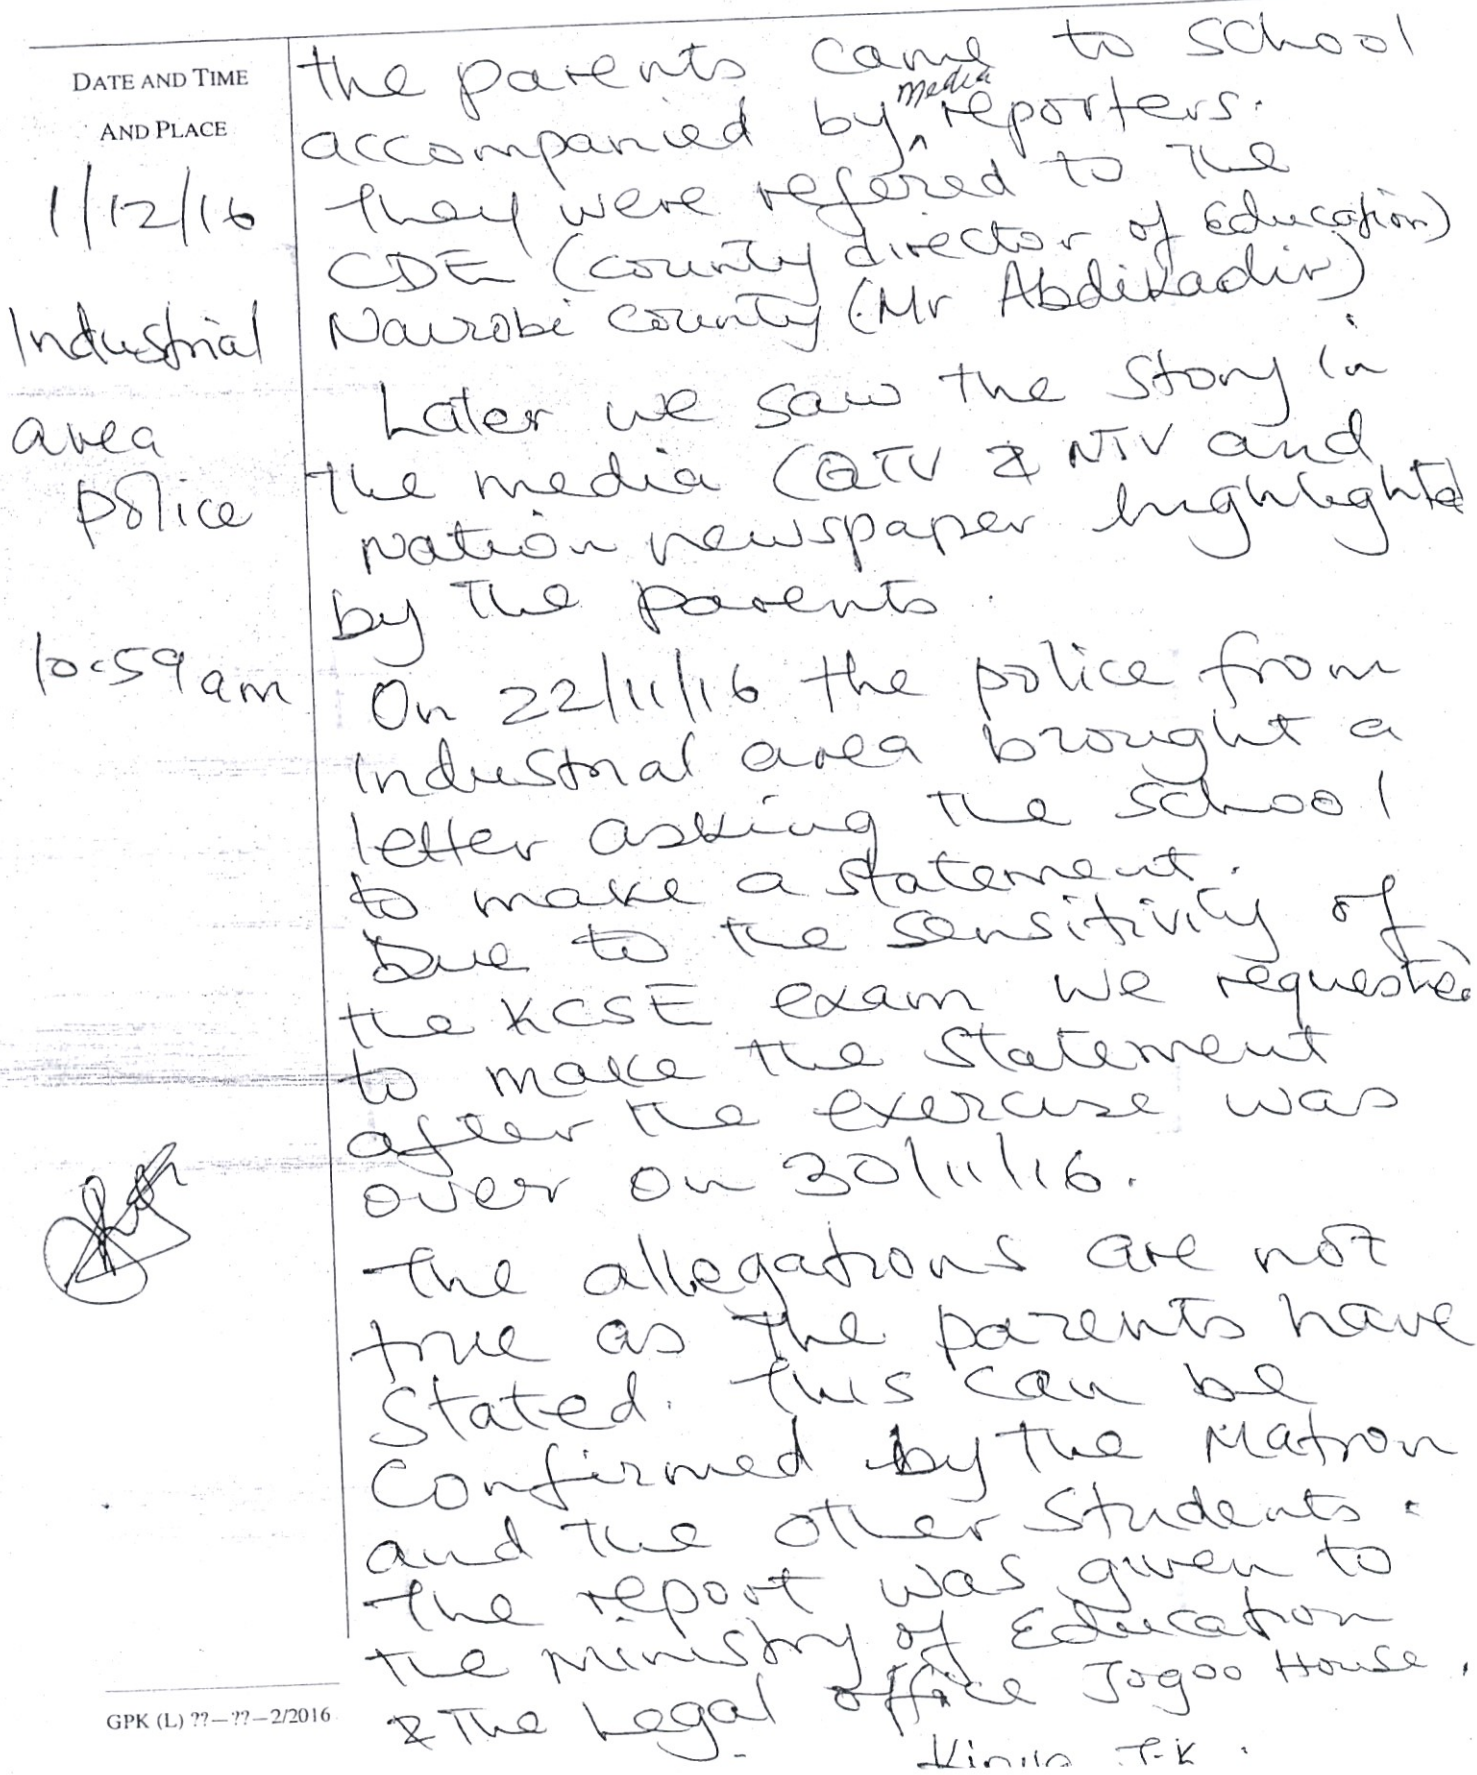 DATE AND TIME
AND PLACE
1/12/16
Industrial
area
police
10.59 am
the parents came to school
accompanied by media reporters.
They were refered to the
CDE (county director of Education)
Nairobi county (Mr Abdikadir)
Later we saw the story in
the media (QTV & NTV and
Nation newspaper highlighted
by the parents.
On 22/11/16 the police from
Industrial area brought a
letter asking the school
to make a statement.
Due to the sensitivity of
the KCSE exam we requested
to make the statement
after the exercise was
over on 30/11/16.
The allegations are not
true as the parents have
stated. This can be
confirmed by the Matron
and the other students.
The report was given to
the Ministry of Education
& The Legal office Jogoo House.
T.K.
GPK (L) ??—??—2/2016